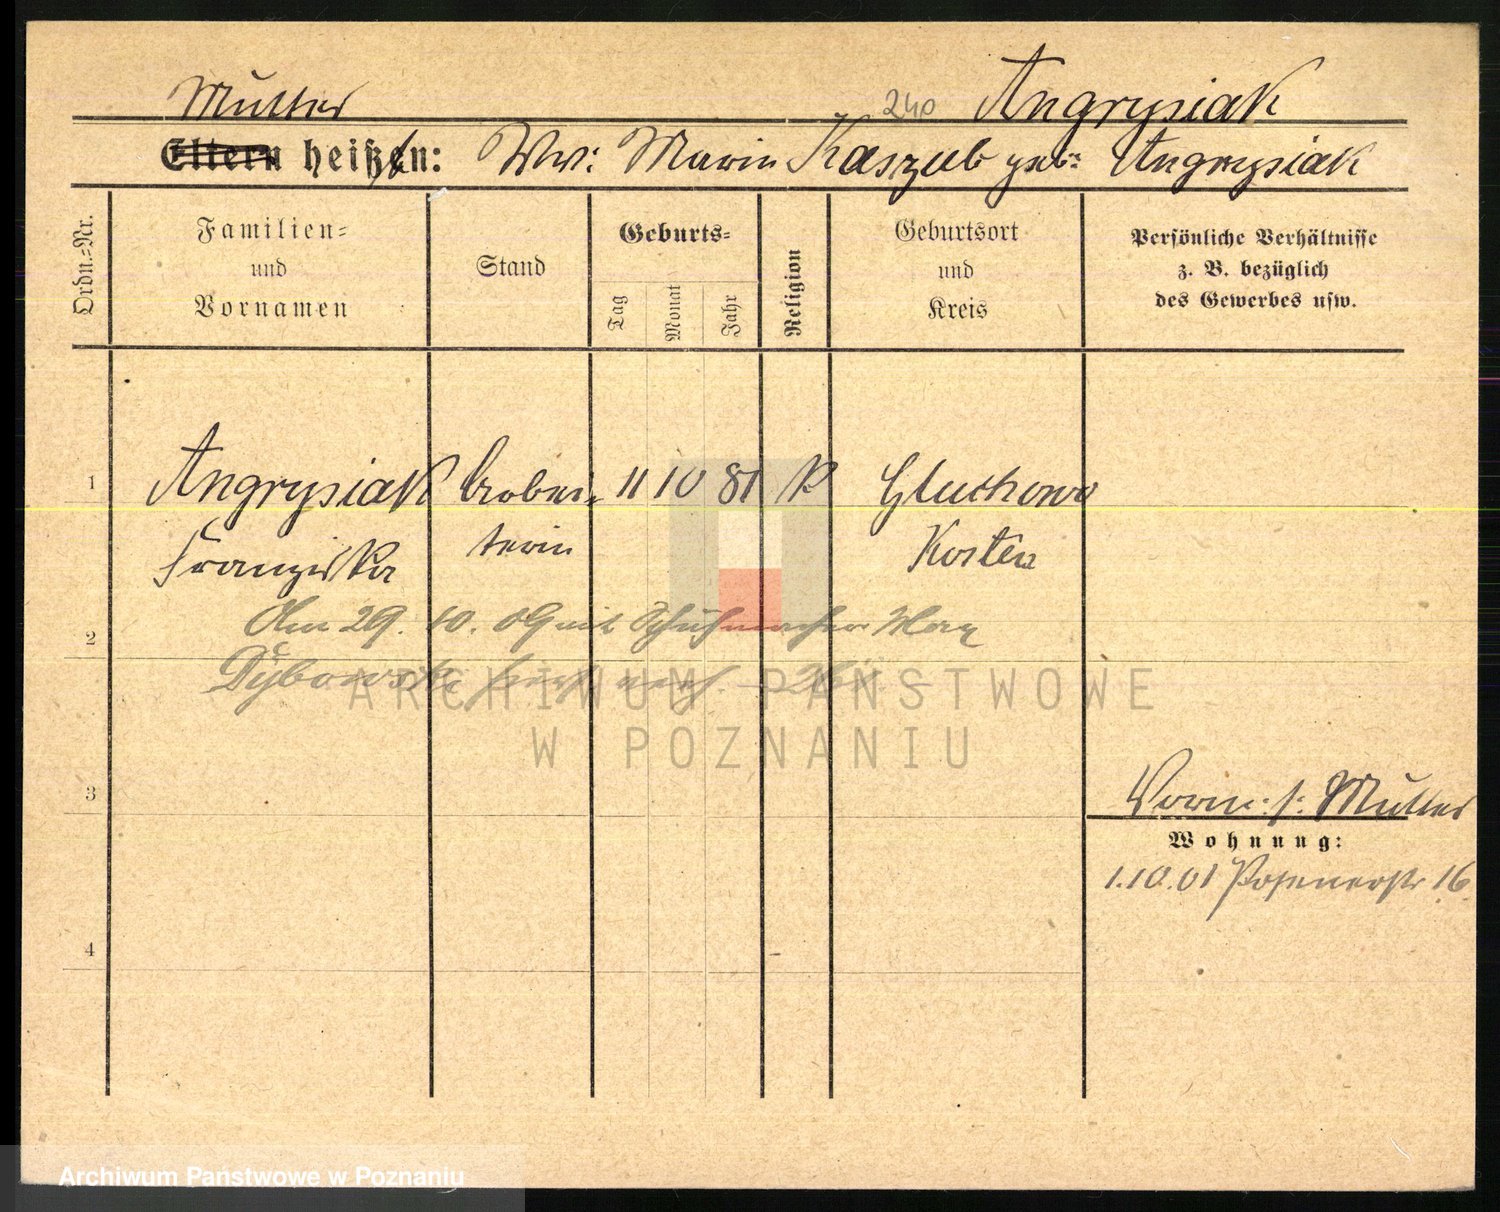 240 Angrysiak
Mutter
Eltern heißen: Ww: Marie Kaszub geb: Angrysiak
Ordn.-Nr.
Familien-
und
Vornamen
Stand
Geburts-
Tag
Monat
Jahr
Religion
Geburtsort
und
Kreis
Persönliche Verhältnisse
z. B. bezüglich
des Gewerbes usw.
1 Angrysiak Arbei- 11 10 81 K Gluchowo
Franziska terin Kosten
Am 29. 10. 09 mit Schuhmacher Max
2
Dybowski verh.
ARCHIWUM PAŃSTWOWE
W POZNANIU
3
Vorm: s: Mutter
Wohnung:
1.10.01 Posenerstr 16
4
Archiwum Państwowe w Poznaniu